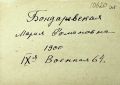 10620 об
Бондаревская
Мария Романовна
1900
IX-я Военная 64.